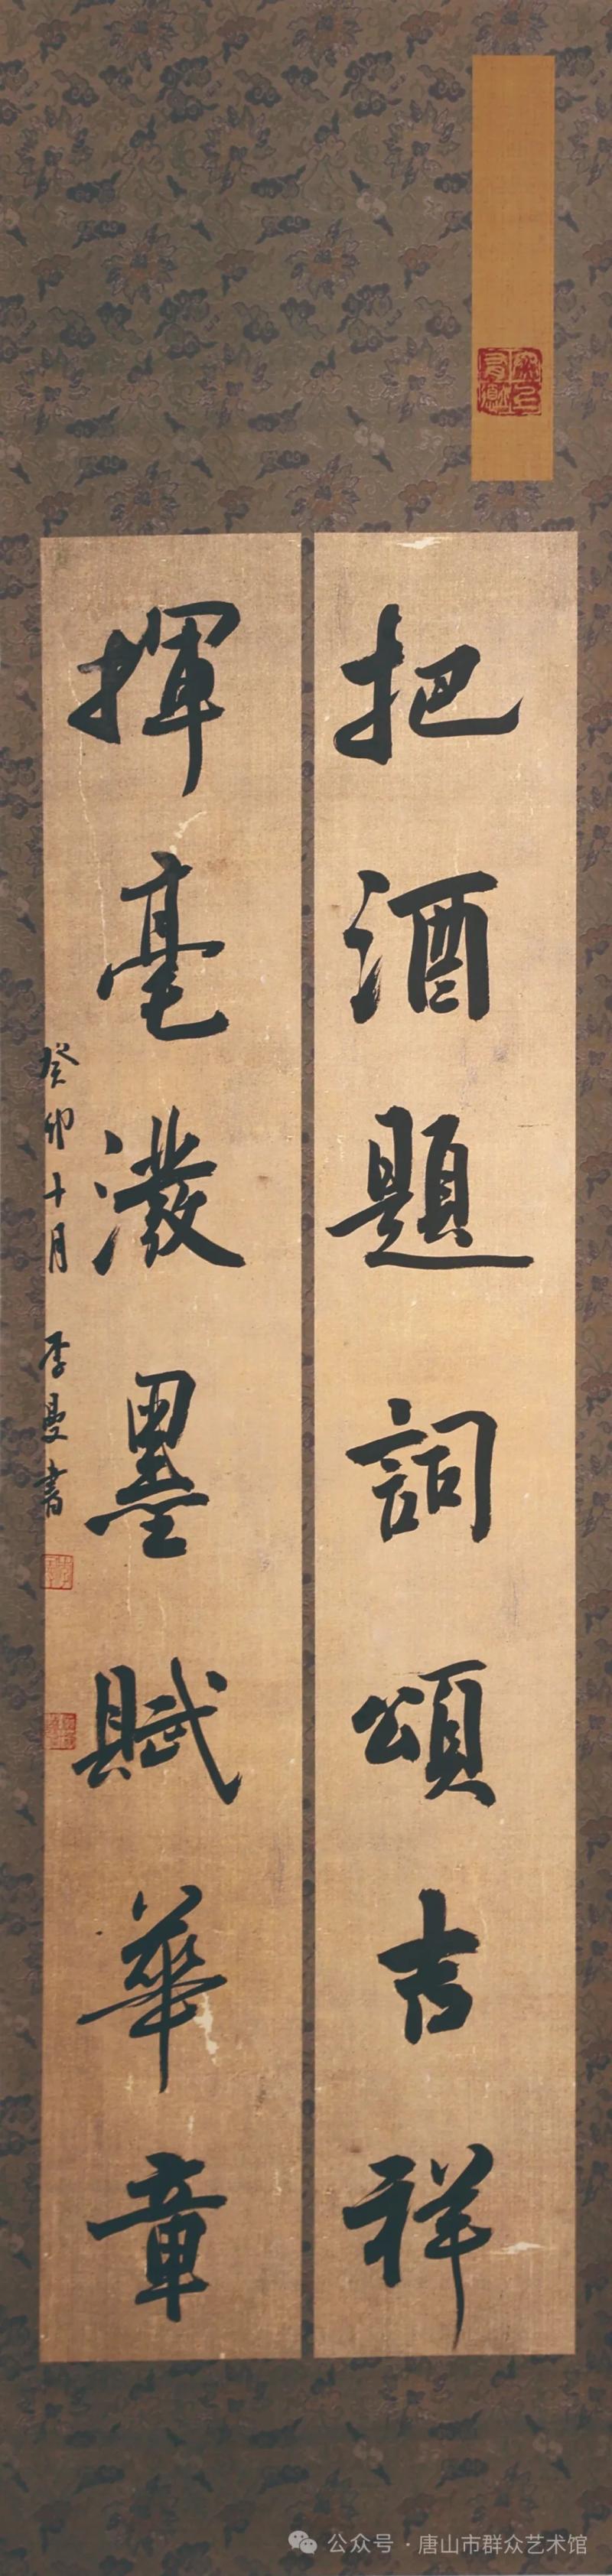 把酒題詞頌吉祥
揮毫潑墨賦華章
癸卯十月 李曼書
公众号·唐山市群众艺术馆